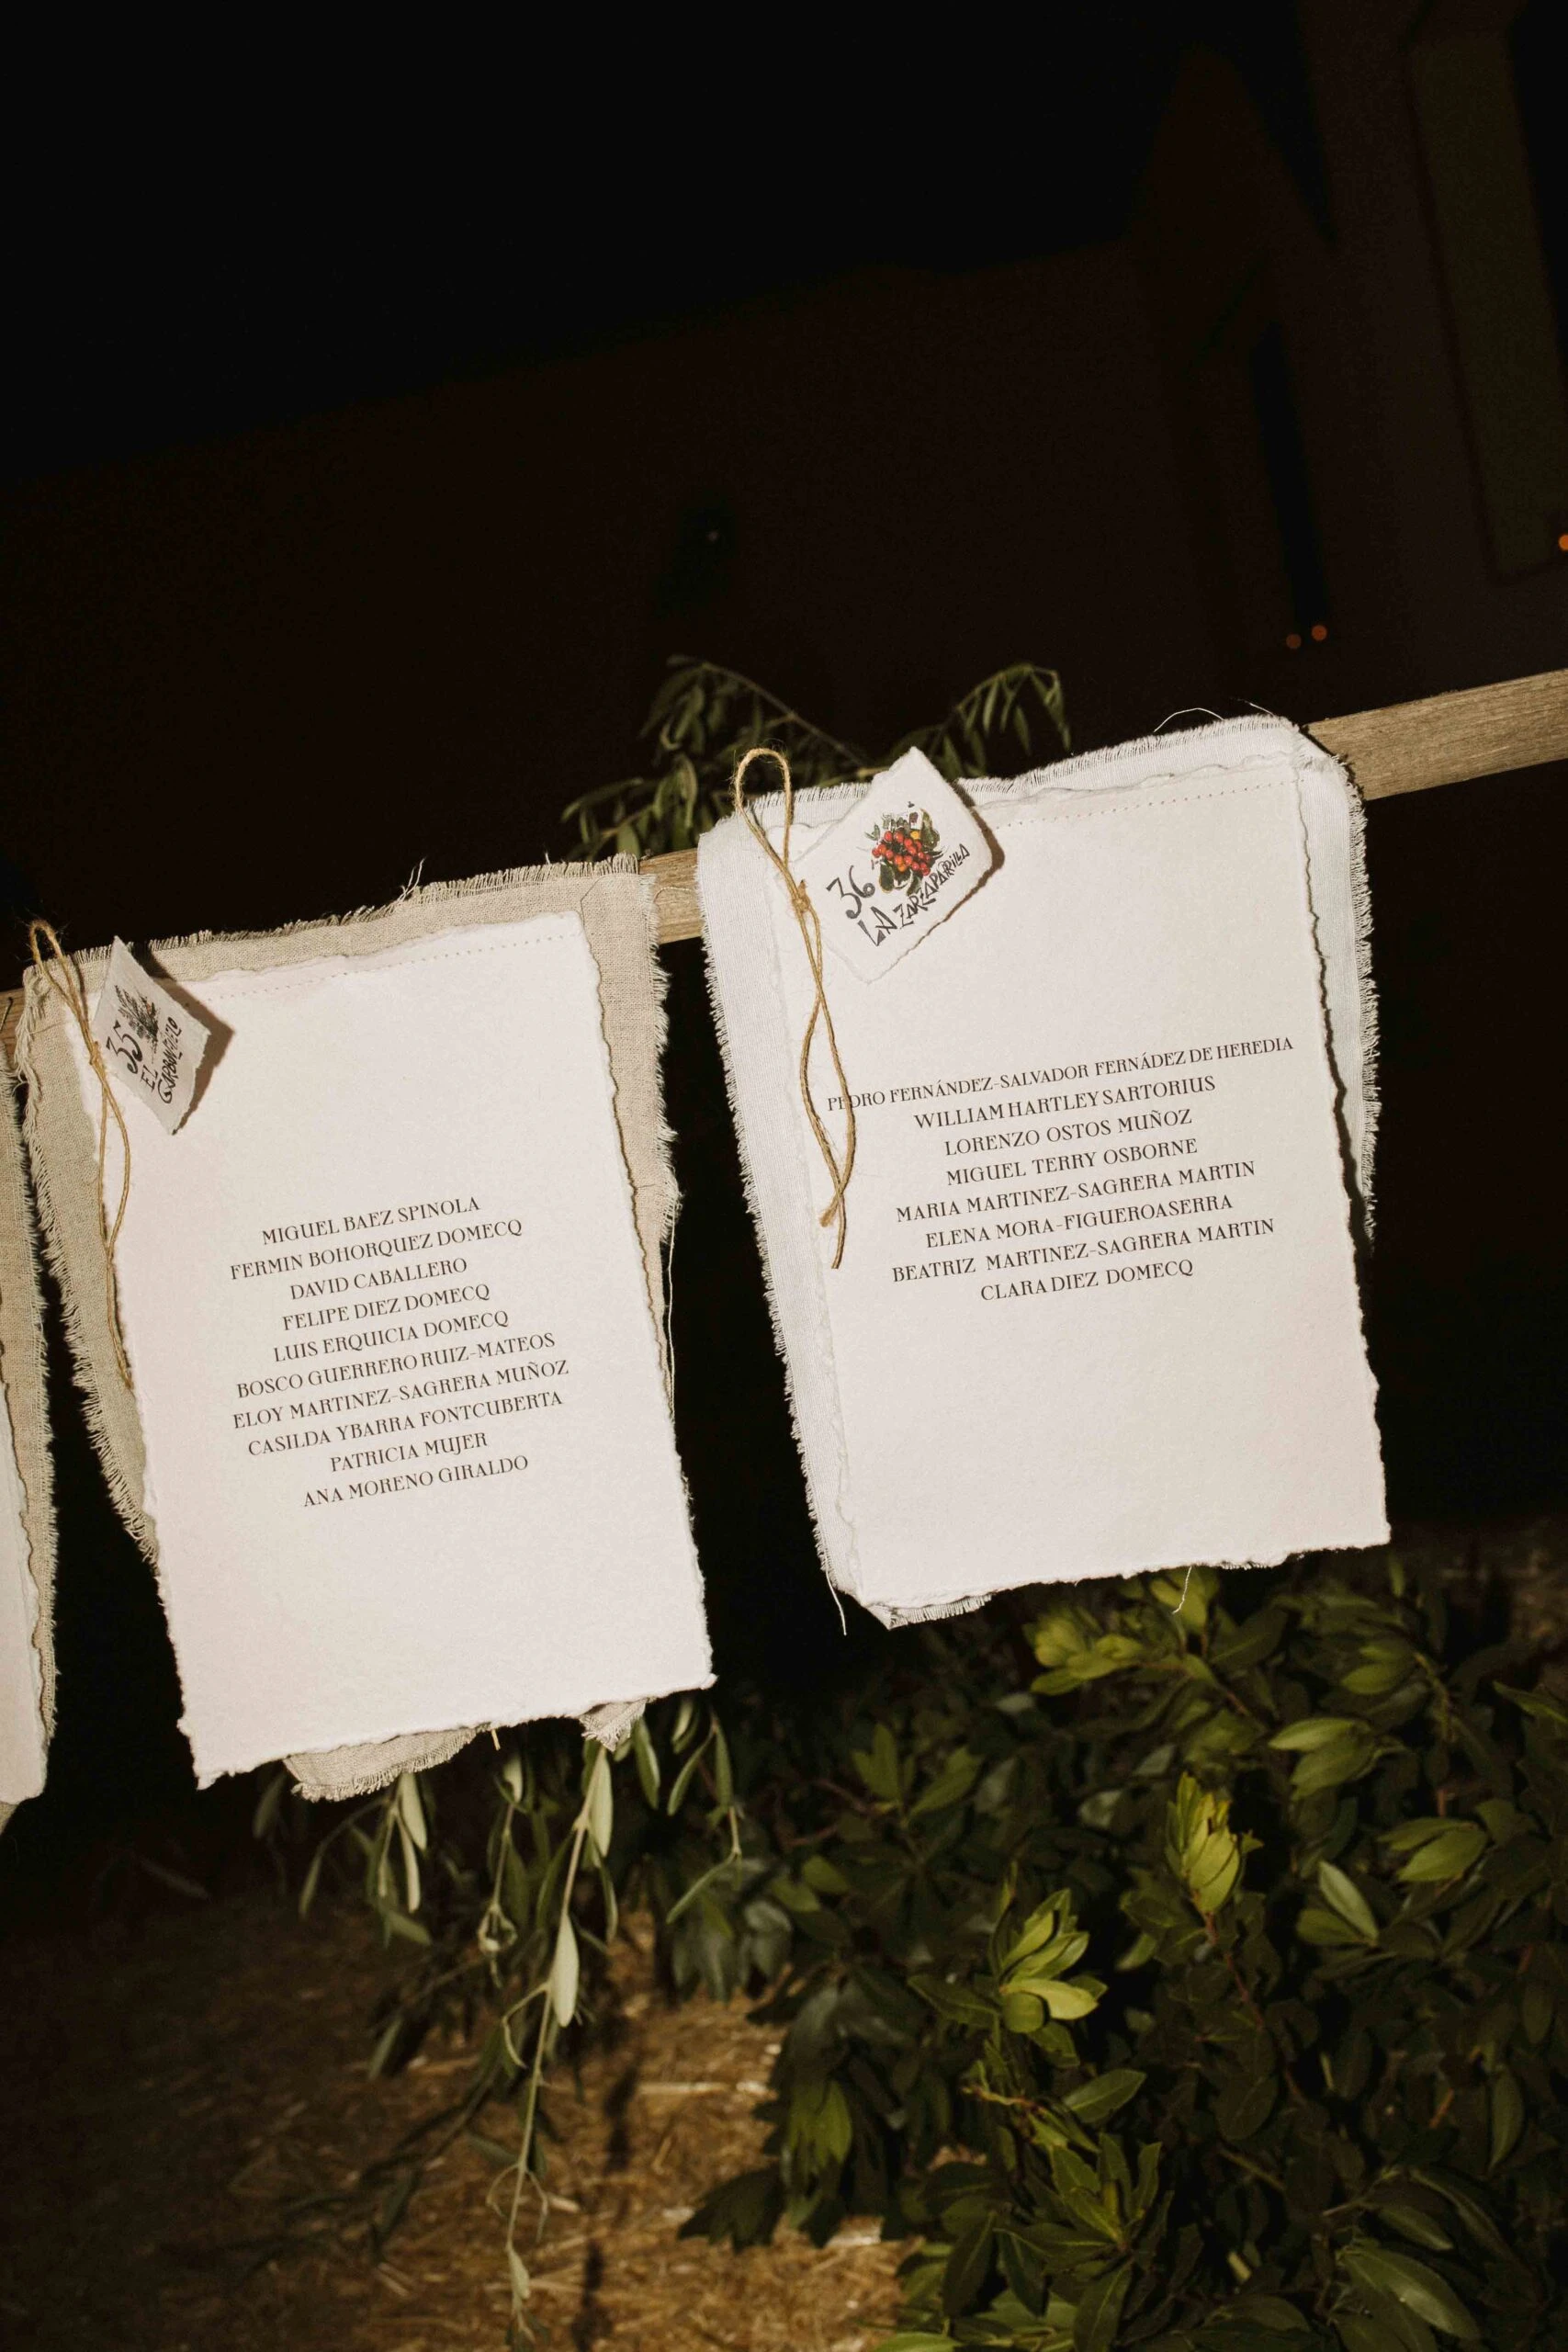 35
EL
MIGUEL BAEZ SPINOLA
FERMIN BOHORQUEZ DOMECQ
DAVID CABALLERO
FELIPE DIEZ DOMECQ
LUIS ERQUICIA DOMECQ
BOSCO GUERRERO RUIZ-MATEOS
ELOY MARTINEZ-SAGRERA MUÑOZ
CASILDA YBARRA FONTCUBERTA
PATRICIA MUJER
ANA MORENO GIRALDO
36
LA ZARZAPARRILLA
PEDRO FERNÁNDEZ-SALVADOR FERNÁDEZ DE HEREDIA
WILLIAM HARTLEY SARTORIUS
LORENZO OSTOS MUÑOZ
MIGUEL TERRY OSBORNE
MARIA MARTINEZ-SAGRERA MARTIN
ELENA MORA-FIGUEROASERRA
BEATRIZ MARTINEZ-SAGRERA MARTIN
CLARA DIEZ DOMECQ